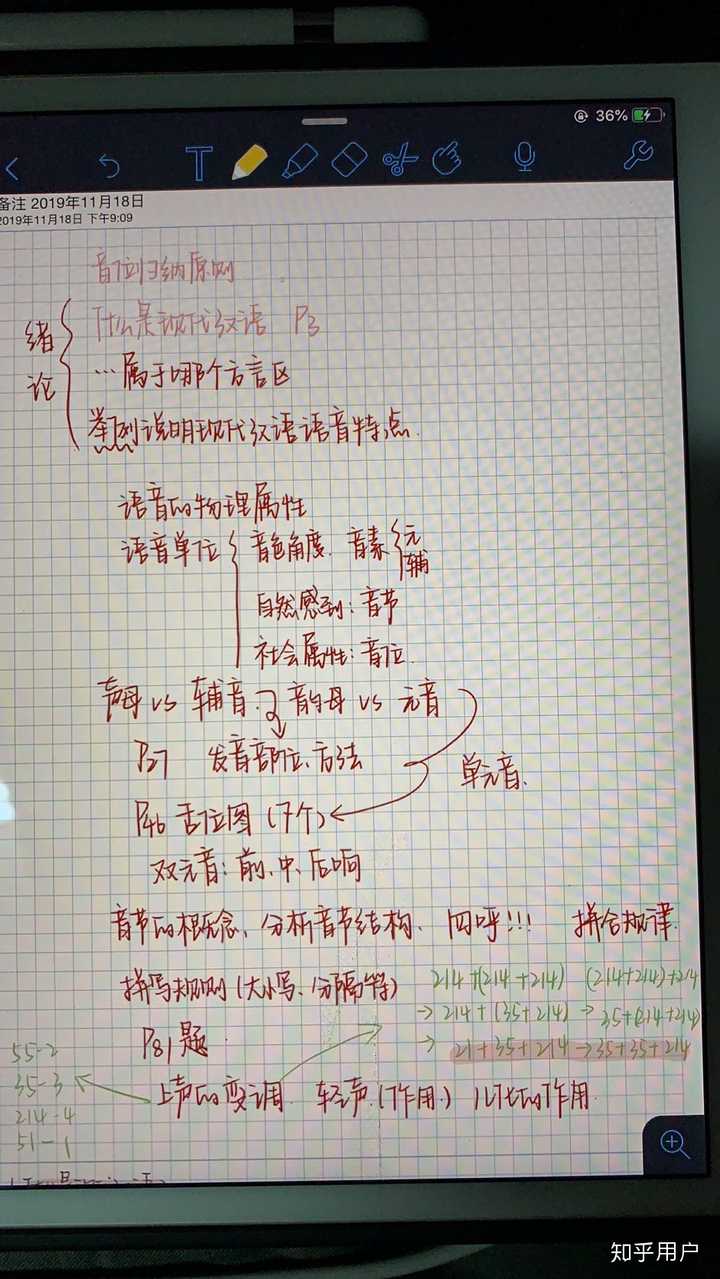 36%
T
备注 2019年11月18日
2019年11月18日 下午9:09
音位归纳原则
绪论
什么是现代汉语 P3
…属于哪个方言区
举例说明现代汉语语音特点.
语音的物理属性
语音单位 音色角度. 音素 元 辅
自然感到: 音节
社会属性: 音位.
声母 vs 辅音. 韵母 vs 元音
P27 发音部位、方法
单元音.
P46 舌位图 (7个)
双元音: 前、中、后响
音节的概念、分析音节结构、 四呼!!! 拼合规律.
拼写规则 (大小写、分隔符)
214+(214+214) (214+214)+214
→ 214+(35+214) → 35+(214+214)
→ 21+35+214 → 35+35+214
P81题.
上声的变调. 轻声.(作用.) 儿化的作用.
55-2
35-3
214-4
51-1
知乎用户